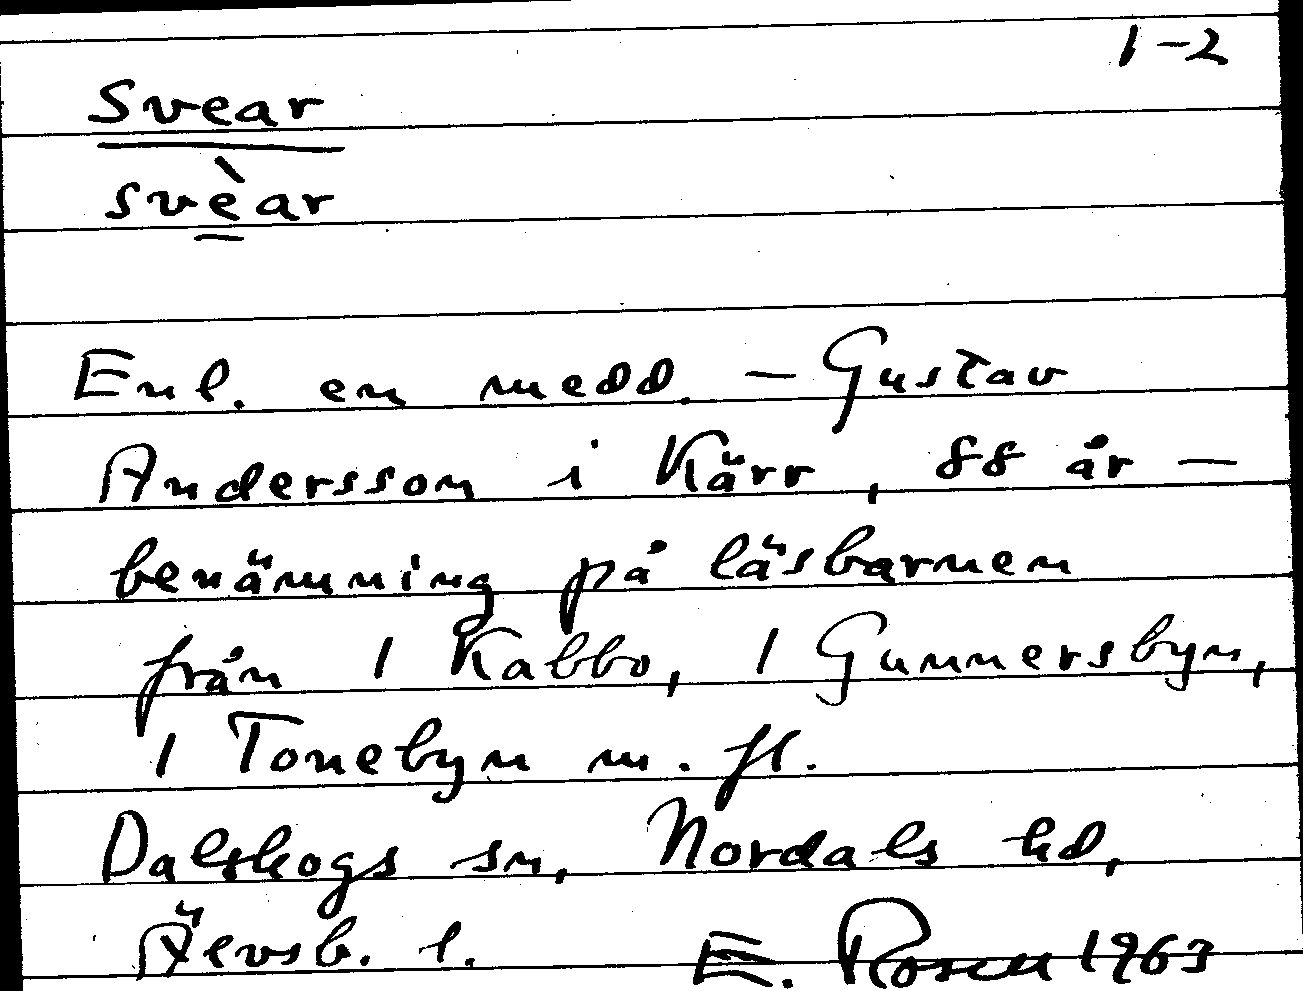 1-2
Svear
svèar
Enl. en medd. - Gustav
Andersson i Kärr, 88 år -
benämning på läsbarnen
från 1 Kabbo, 1 Gunnersbyn,
1 Tonebyn m. fl.
Dalskogs sn, Nordals hd,
Älvsb. l. E. Rosen 1963